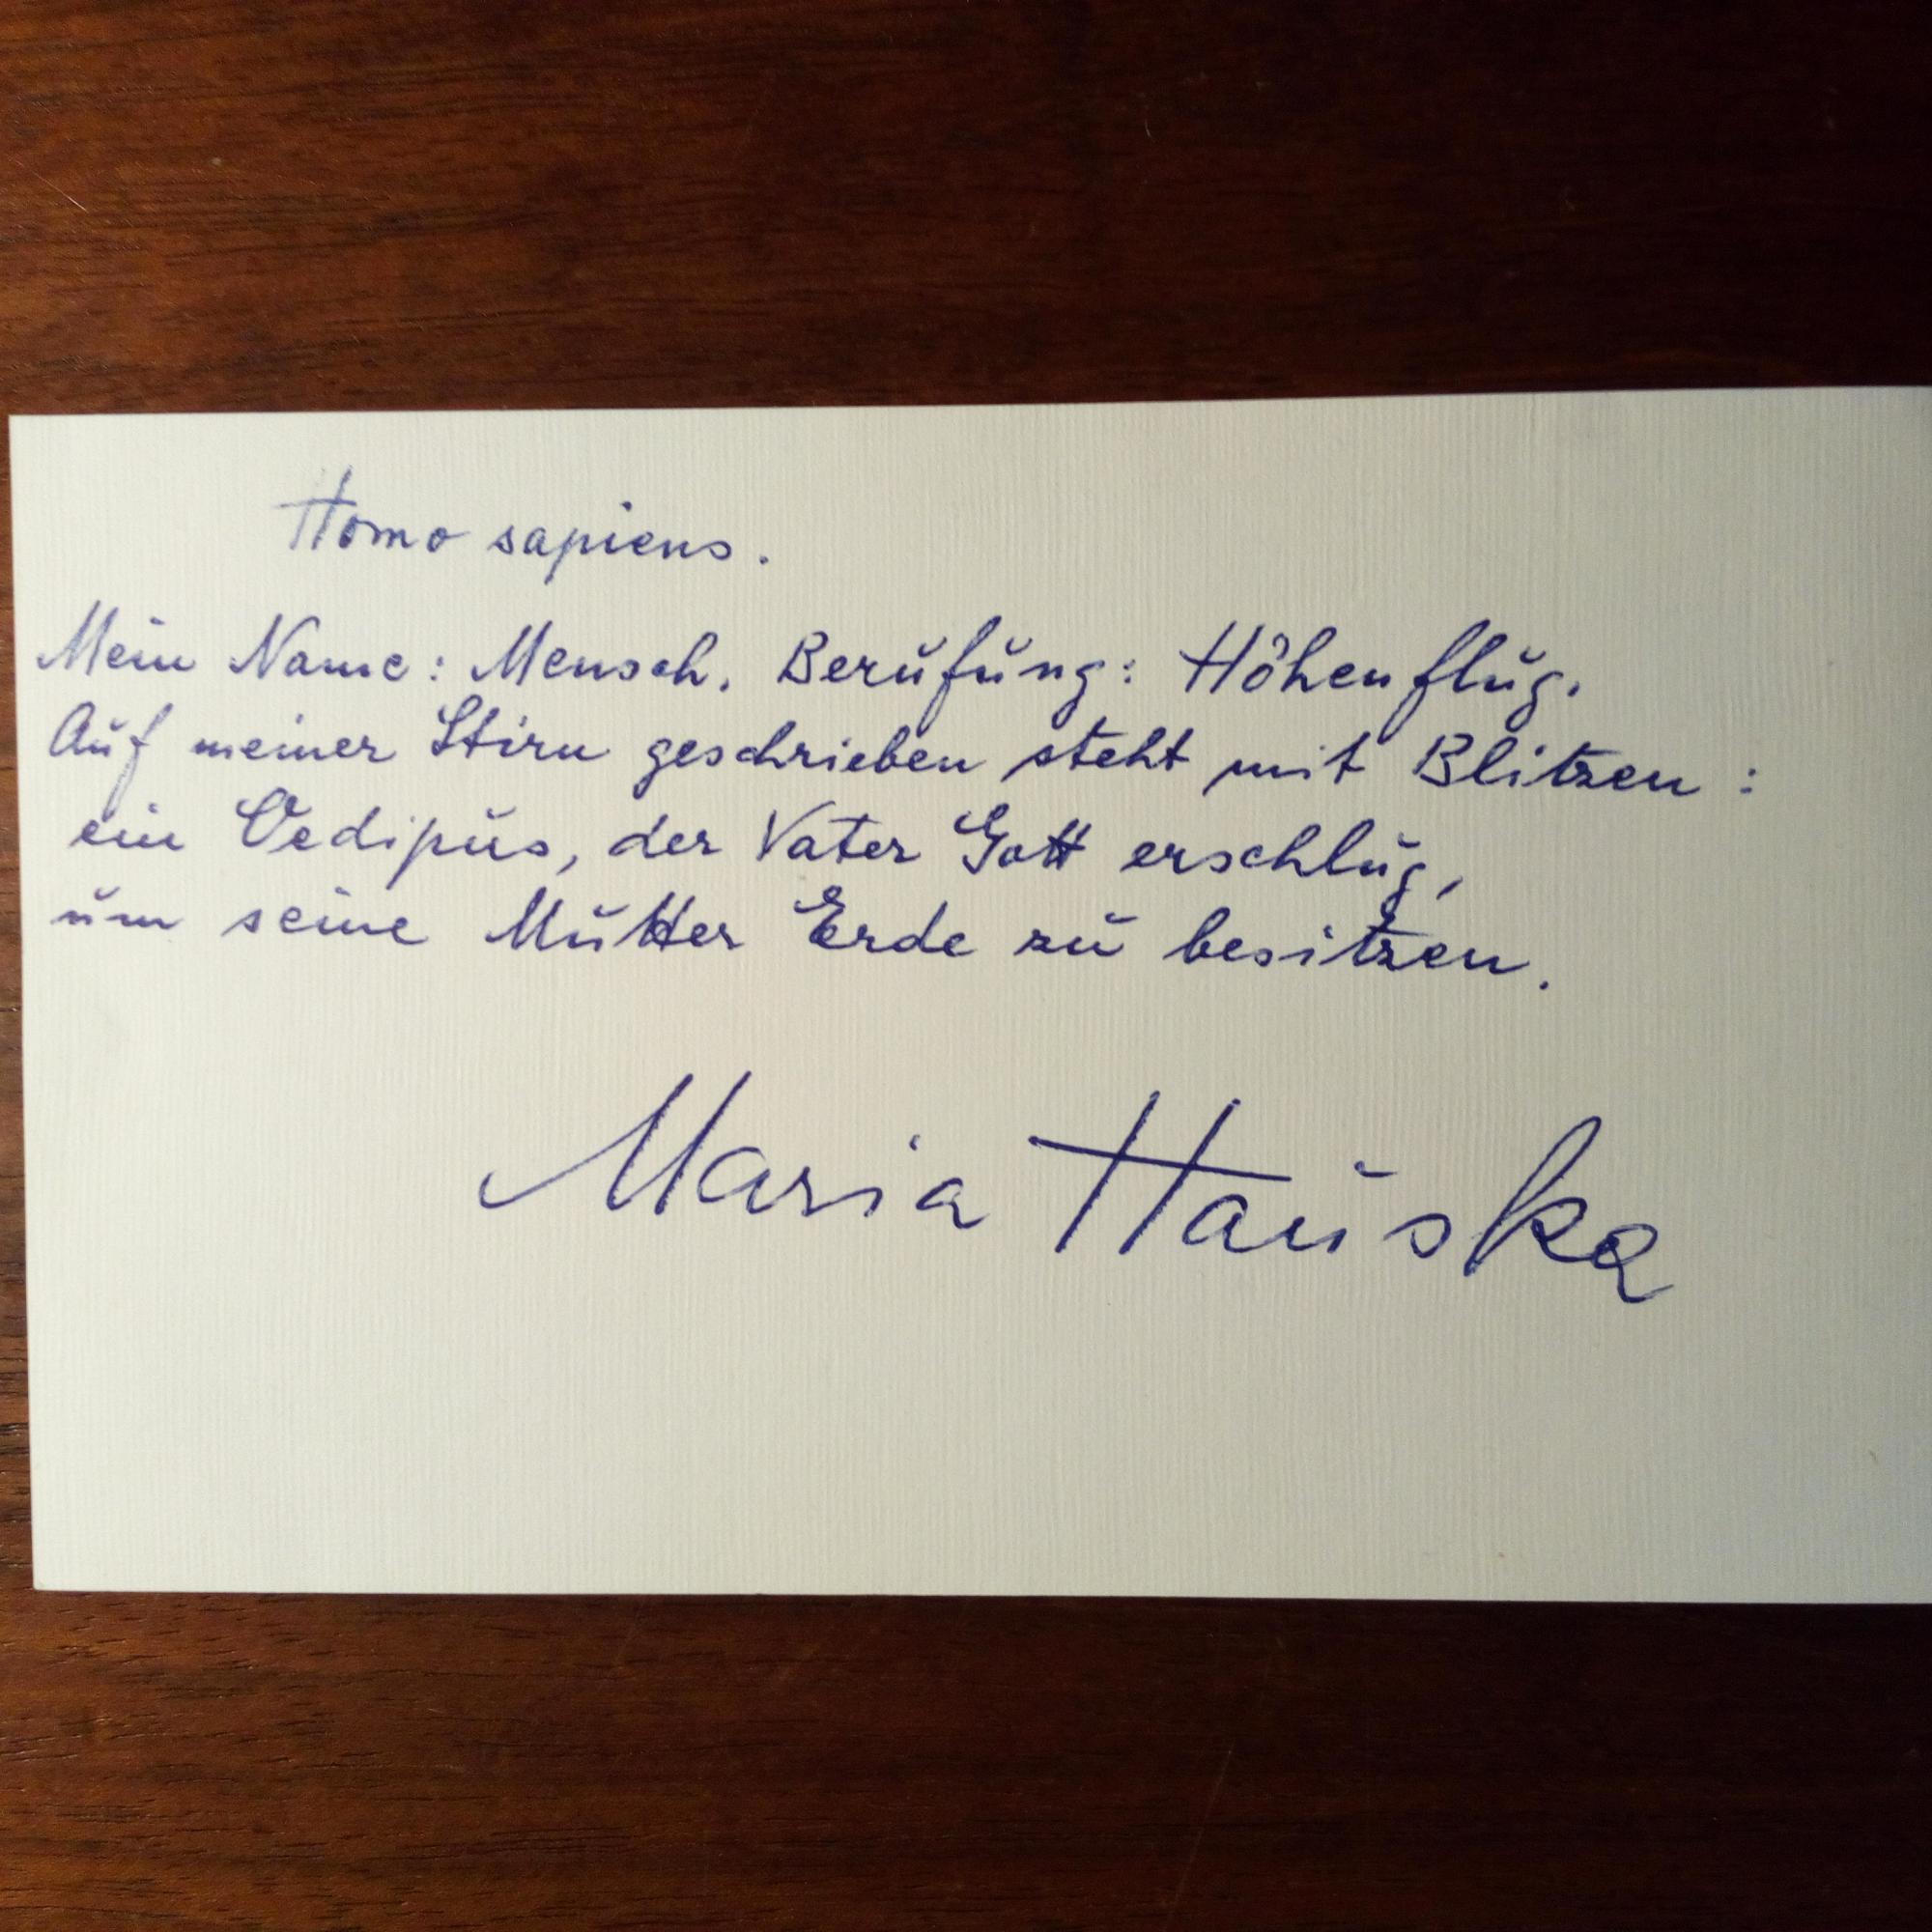 Homo sapiens.
Mein Name: Mensch. Berufung: Höhenflug.
Auf meiner Stirn geschrieben steht mit Blitzen:
ein Oedipus, der Vater Gott erschlug,
um seine Mutter Erde zu besitzen.
Maria Hauska